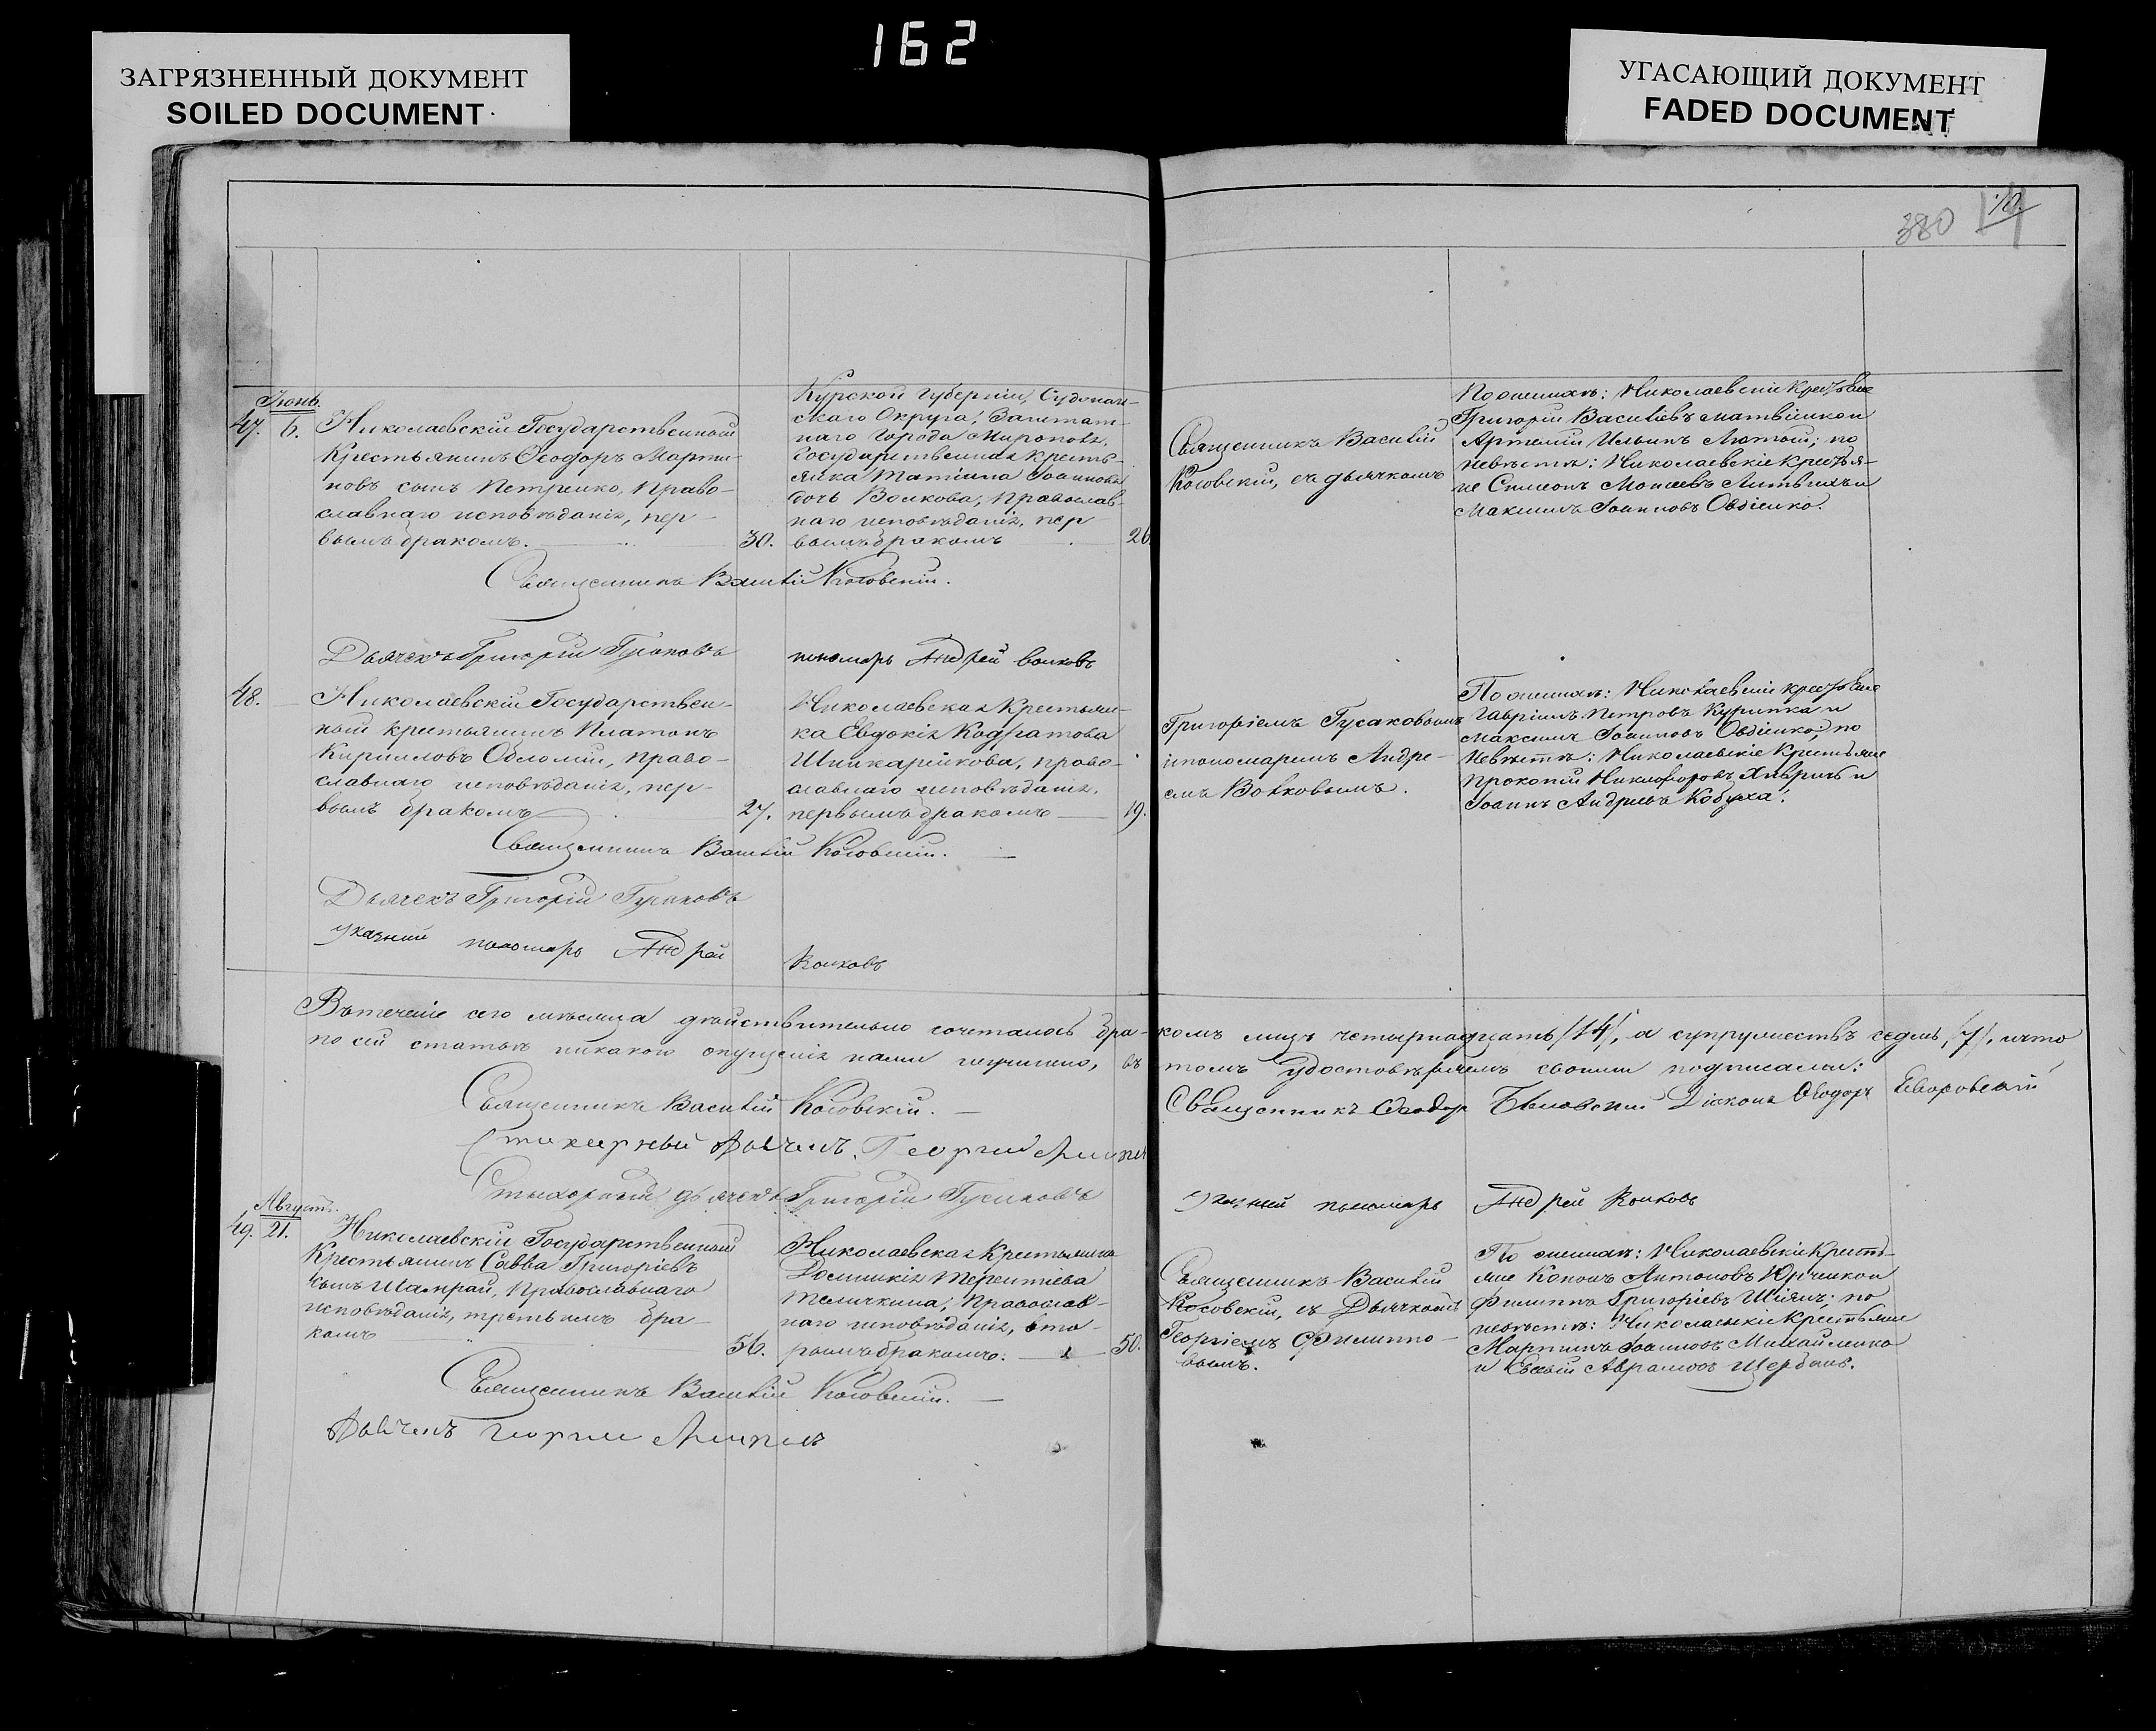 162
ЗАГРЯЗНЕННЫЙ ДОКУМЕНТ
SOILED DOCUMENT
УГАСАЮЩИЙ ДОКУМЕНТ
FADED DOCUMENT
380
Іюнь.
47. 6.
Николаевскій Государственный
Крестьянинъ Ѳеодоръ Марти-
новъ сынъ Петренко, Право-
славнаго исповѣданія, пер-
вымъ бракомъ. 30.
Курской Губерніи,
скаго Округа, Заштат-
наго Города Миропол
Государственная кресть-
янка Татіана Іоаннова
дочь Волкова, Православ-
наго исповѣданія, пер
вымъ бракомъ 26.
Священникъ Василій
Косовскій, съ дьячкомъ
По женихѣ: Николаевскіе Крестьяне
Григорій Васильевъ Матвіенко и
Артемій Ильинъ Лютый; по
невѣстѣ: Николаевскіе Крестья-
не Симеонъ Моисеевъ и
Максимъ Іоанновъ Овдіенко.
Священникъ Василій Косовскій.
Дьячекъ Григорій Гусаковъ
пономарь Андрей Волковъ
48.
Николаевскій Государствен-
ный крестьянинъ Платонъ
Кирилловъ право-
славнаго исповѣданія, пер-
вымъ бракомъ 27.
Николаевская Крестьян-
ка Евдокія Кодратова
Шинкаренкова, право-
славнаго исповѣданія,
первымъ бракомъ 19.
Григоріемъ Гусаковымъ
и пономаремъ Андре-
емъ Волковымъ.
По женихѣ: Николаевскіе крестьяне
Гавріилъ Петровъ Курипка и
Максимъ Іоанновъ Овдіенко, по
Невѣстѣ: Николаевскіе Крестьяне
Прокопій Никифоровъ и
Іоаннъ Андреевъ
Священникъ Василій Косовскій.
Дьячекъ Григорій Гусаковъ
указный пономарь Андрей Волковъ
Въ теченіе сего мѣсяца дѣйствительно сочеталось бра-комъ лицъ четырнадцать /14/, а супружествъ седмь, /7/, и что
по сей статьѣ никакого опущенія нами неучинено, въ томъ удостовѣряемъ своими подписами:
Священникъ Василій Косовскій.
Священникъ Ѳеодоръ Діаконъ Ѳеодоръ
Стихарный Дьячекъ Георгій
Стихарный дьячекъ Григорій Гусаковъ
указный пономарь Андрей Волковъ
Августъ.
49. 21.
Николаевскій Государственный
Крестьянинъ Савва Григоріевъ
сынъ Шамрай, Православнаго
исповѣданія, третьимъ бра-
комъ 56.
Николаевская Крестьянка
Домникія Терентіева
Теличкина, Православ-
наго исповѣданія, вто-
рымъ бракомъ. 50.
Священникъ Василій
Косовскій, съ Дьячкомъ
Георгіемъ Филиппо-
вымъ.
По женихѣ: Николаевскіе Кресть-
яне Кононъ Антоновъ Юрченко и
Филиппъ Григоріевъ Шіянъ; по
невѣстѣ: Николаевскіе Крестьяне
Мартинъ Іоанновъ Михайленко
и Авраамовъ Щербань.
Священникъ Василій Косовскій.
Дьячекъ Георгій